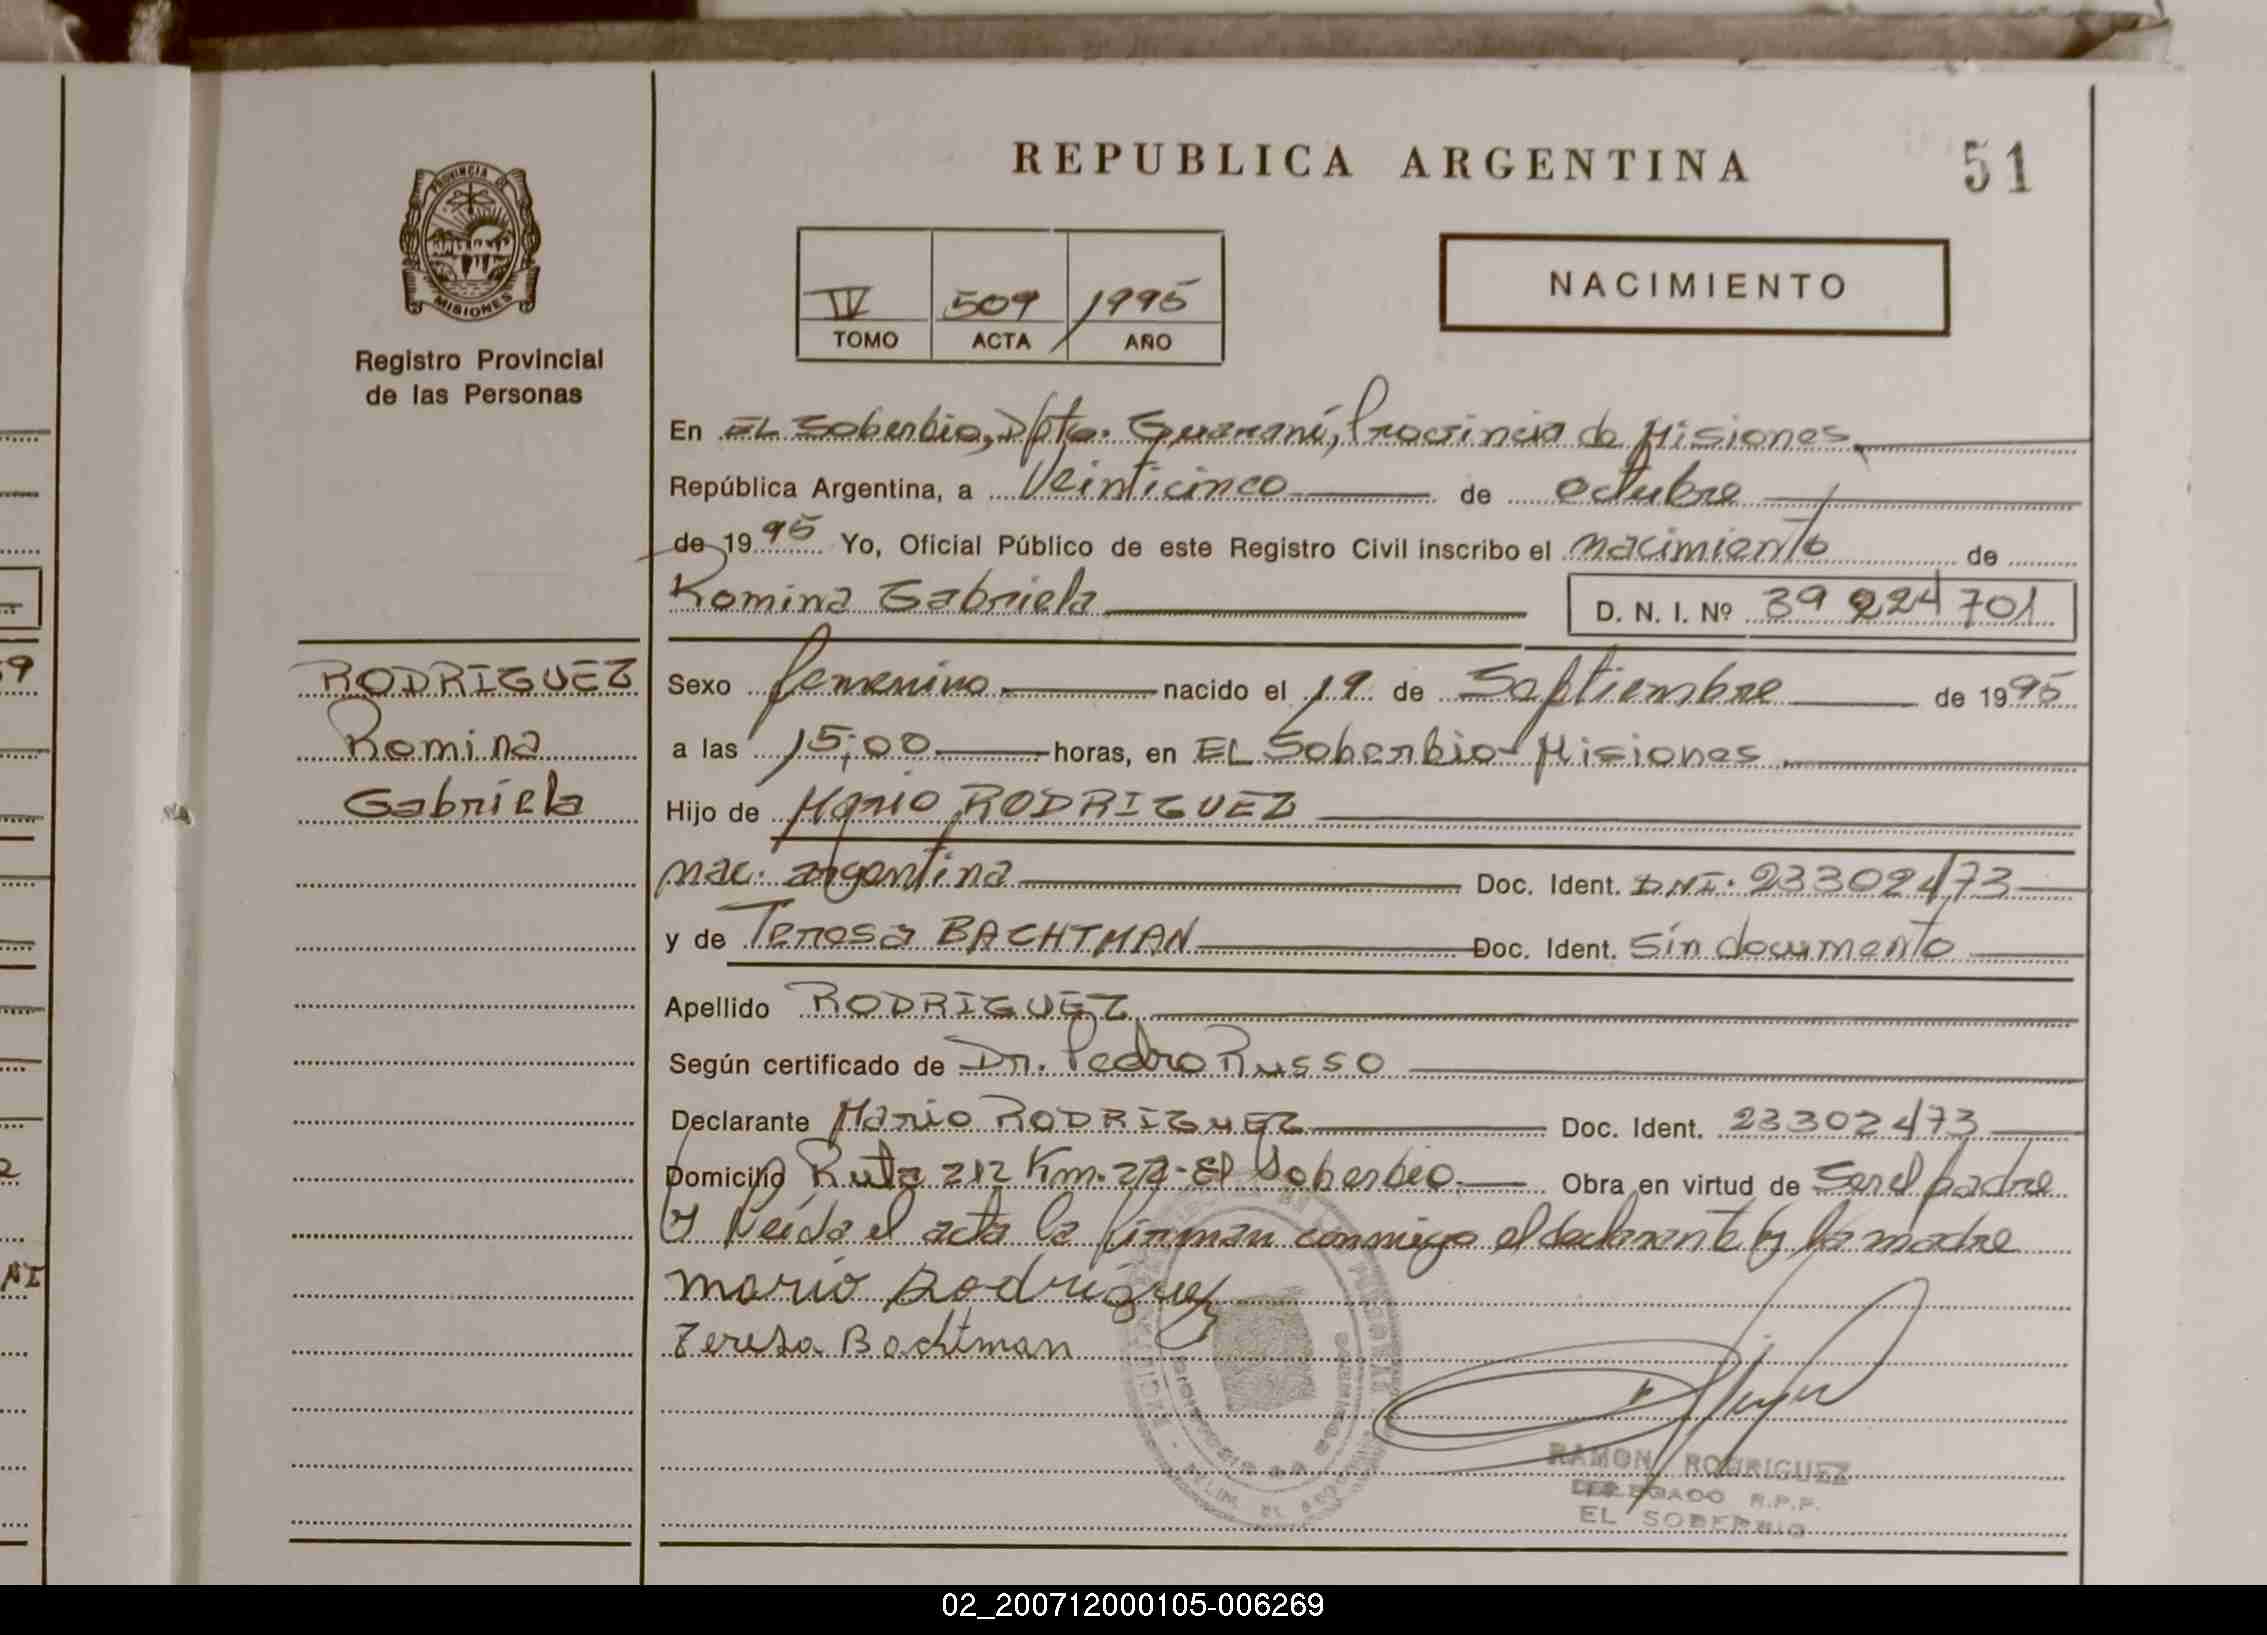 REPUBLICA ARGENTINA
51
PROVINCIA DE
MISIONES
Registro Provincial
de las Personas
IV 509 1995
TOMO ACTA AÑO
NACIMIENTO
En EL Soberbio, Dpto. Guaraní, Provincia de Misiones
República Argentina, a Veinticinco de octubre
de 1995 Yo, Oficial Público de este Registro Civil inscribo el nacimiento de
Romina Gabriela D. N. I. Nº 39 224 701
RODRIGUEZ
Romina
Gabriela
Sexo femenino nacido el 19 de Septiembre de 1995
a las 15,00 horas, en EL Soberbio-Misiones
Hijo de Mario RODRIGUEZ
nac. argentina Doc. Ident. DNI. 23302473
y de Teresa BACHTMAN Doc. Ident. Sin documento
Apellido RODRIGUEZ
Según certificado de Dr. Pedro Russo
Declarante Mario RODRIGUEZ Doc. Ident. 23302473
Domicilio Ruta 212 Km. 22-El Soberbio Obra en virtud de Ser el padre
y leída el acta la firman conmigo el declarante y la madre
mario Rodriguez
Teresa Bachtman
RAMON RODRIGUEZ
DELEGADO R.P.P.
EL SOBERBIO
02_200712000105-006269